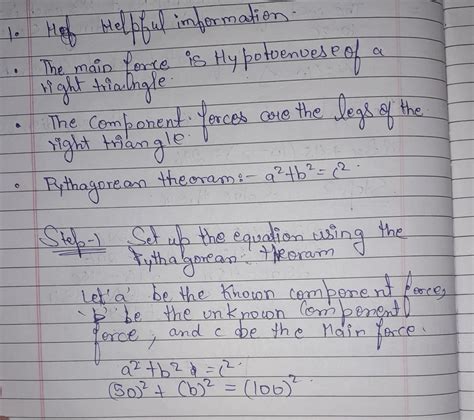 1. Hef Helpful information.
• The main force is Hypotenuese of a
right triangle.
• The component forces are the legs of the
right triangle.
• Pythagorean theoram:- a²+b²=c².
Step-1 Set up the equation using the
Pythagorean theoram
Let 'a' be the known component force,
'b' be the unknown component
force, and c be the Main force.
a²+b² = c².
(50)² + (b)² = (100)².